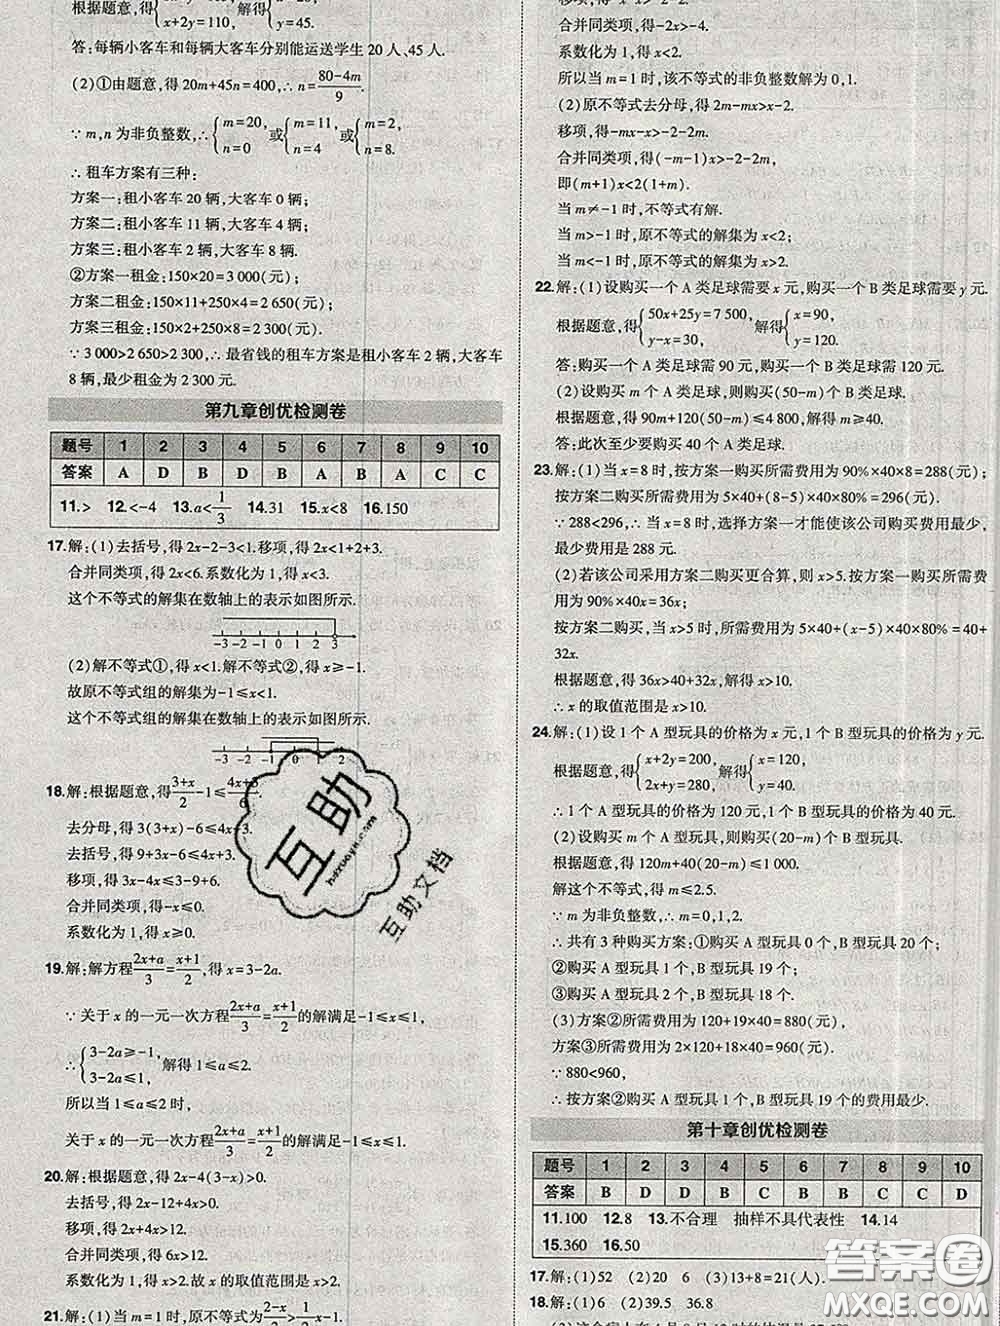 根据题意,得 x+2y=110, 解得 y=45.
答:每辆小客车和每辆大客车分别能运送学生 20 人、45 人.
(2)①由题意,得 20m+45n=400,∴n=(80-4m)/9.
∵m,n 为非负整数,∴{m=20, n=0 或{m=11, n=4 或{m=2, n=8.
∴租车方案有三种:
方案一:租小客车 20 辆,大客车 0 辆;
方案二:租小客车 11 辆,大客车 4 辆;
方案三:租小客车 2 辆,大客车 8 辆.
②方案一租金:150×20=3 000(元);
方案二租金:150×11+250×4=2 650(元);
方案三租金:150×2+250×8=2 300(元).
∵3 000>2 650>2 300,∴最省钱的租车方案是租小客车 2 辆,大客车
8 辆,最少租金为 2 300 元.
第九章创优检测卷
题号 1 2 3 4 5 6 7 8 9 10
答案 A D B D A B A C C
11.> 12.<-4 13.a<1/3 14.31 15.x<8 16.150
17.解:(1)去括号,得 2x-2-3<1.移项,得 2x<1+2+3.
合并同类项,得 2x<6.系数化为 1,得 x<3.
这个不等式的解集在数轴上的表示如图所示.
-3 -2 -1 0 1 2 3
(2)解不等式①,得 x<1.解不等式②,得 x≥-1.
故原不等式组的解集为-1≤x<1.
这个不等式组的解集在数轴上的表示如图所示.
-3 -2 -1 0 1 2 3
18.解:根据题意,得(3+x)/2-1≤(4x+3)/6.
去分母,得 3(3+x)-6≤4x+3.
去括号,得 9+3x-6≤4x+3.
移项,得 3x-4x≤3-9+6.
合并同类项,得-x≤0.
系数化为 1,得 x≥0.
19.解:解方程(2x+a)/3=(x+1)/2,得 x=3-2a.
∵关于 x 的一元一次方程(2x+a)/3=(x+1)/2的解满足-1≤x≤1,
∴{3-2a≥-1, 3-2a≤1, 解得 1≤a≤2.
所以当 1≤a≤2 时,
关于 x 的一元一次方程(2x+a)/3=(x+1)/2的解满足-1≤x≤1.
20.解:根据题意,得 2x-4(3-x)>0.
去括号,得 2x-12+4x>0.
移项,得 2x+4x>12.
合并同类项,得 6x>12.
系数化为 1,得 x>2.故 x 的取值范围是 x>2.
21.解:(1)当 m=1 时,原不等式为(2-x)/2>
合并同类项,得-2x>-4.
系数化为 1,得 x<2.
所以当 m=1 时,该不等式的非负整数解为 0,1.
(2)原不等式去分母,得 2m-mx>x-2.
移项,得-mx-x>-2-2m.
合并同类项,得(-m-1)x>-2-2m,
即(m+1)x<2(1+m).
当 m≠-1 时,不等式有解.
当 m>-1 时,原不等式的解集为 x<2;
当 m<-1 时,原不等式的解集为 x>2.
22.解:(1)设购买一个 A 类足球需要 x 元,购买一个 B 类足球需要 y 元.
根据题意,得{50x+25y=7 500, y-x=30, 解得{x=90, y=120.
答:购买一个 A 类足球需 90 元,购买一个 B 类足球需要 120 元.
(2)设购买 m 个 A 类足球,则购买(50-m)个 B 类足球.
根据题意,得 90m+120(50-m)≤4 800,解得 m≥40.
答:此次至少要购买 40 个 A 类足球.
23.解:(1)当 x=8 时,按方案一购买所需费用为 90%×40×8=288(元);
按方案二购买所需费用为 5×40+(8-5)×40×80%=296(元).
∵288<296,∴当 x=8 时,选择方案一才能使该公司购买费用最少,
最少费用是 288 元.
(2)若该公司采用方案二购买更合算,则 x>5.按方案一购买所需费
用为 90%×40x=36x;
按方案二购买,当 x>5 时,所需费用为 5×40+(x-5)×40×80%=40+
32x.
根据题意,得 36x>40+32x,解得 x>10.
∴x 的取值范围是 x>10.
24.解:(1)设 1 个 A 型玩具的价格为 x 元,1 个 B 型玩具的价格为 y 元.
根据题意,得{x+2y=200, 2x+y=280, 解得{x=120, y=40.
∴1 个 A 型玩具的价格为 120 元,1 个 B 型玩具的价格为 40 元.
(2)设购买 m 个 A 型玩具,则购买(20-m)个 B 型玩具.
根据题意,得 120m+40(20-m)≤1 000.
解这个不等式,得 m≤2.5.
∵m 为非负整数,∴m=0,1,2.
∴共有 3 种购买方案:①购买 A 型玩具 0 个,B 型玩具 20 个;
②购买 A 型玩具 1 个,B 型玩具 19 个;
③购买 A 型玩具 2 个,B 型玩具 18 个.
(3)方案②所需费用为 120+19×40=880(元),
方案③所需费用为 2×120+18×40=960(元),
∵880<960,
∴按方案②购买 A 型玩具 1 个,B 型玩具 19 个的费用最少.
第十章创优检测卷
题号 1 2 3 4 5 6 7 8 9 10
答案 B D D B C B B C C D
11.100 12.8 13.不合理 抽样不具代表性 14.14
15.360 16.50
17.解:(1)52 (2)20 6 (3)13+8=21(人)
18.解:(1)6 (2)39.5 36.8
互助
hdzuoye.com
互助文档
答案圈
MXQE.COM